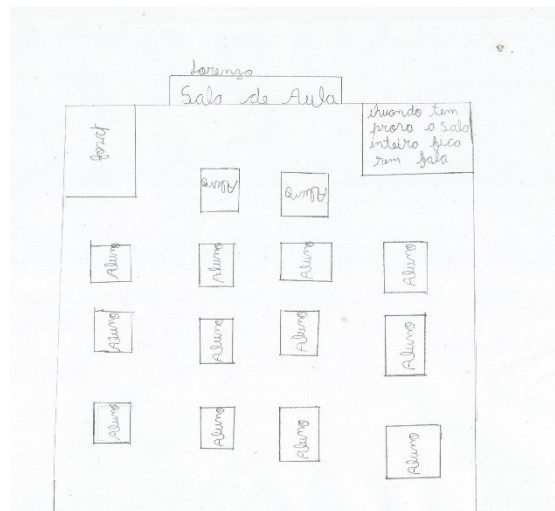 Lorenzo
Sala de Aula
quando tem
prova a sala
inteira fica
sem fala
Aluno
Aluno
Aluno
Aluno
Aluno
Aluno
Aluno
Aluno
Aluno
Aluno
Aluno
Aluno
Aluno
Aluno